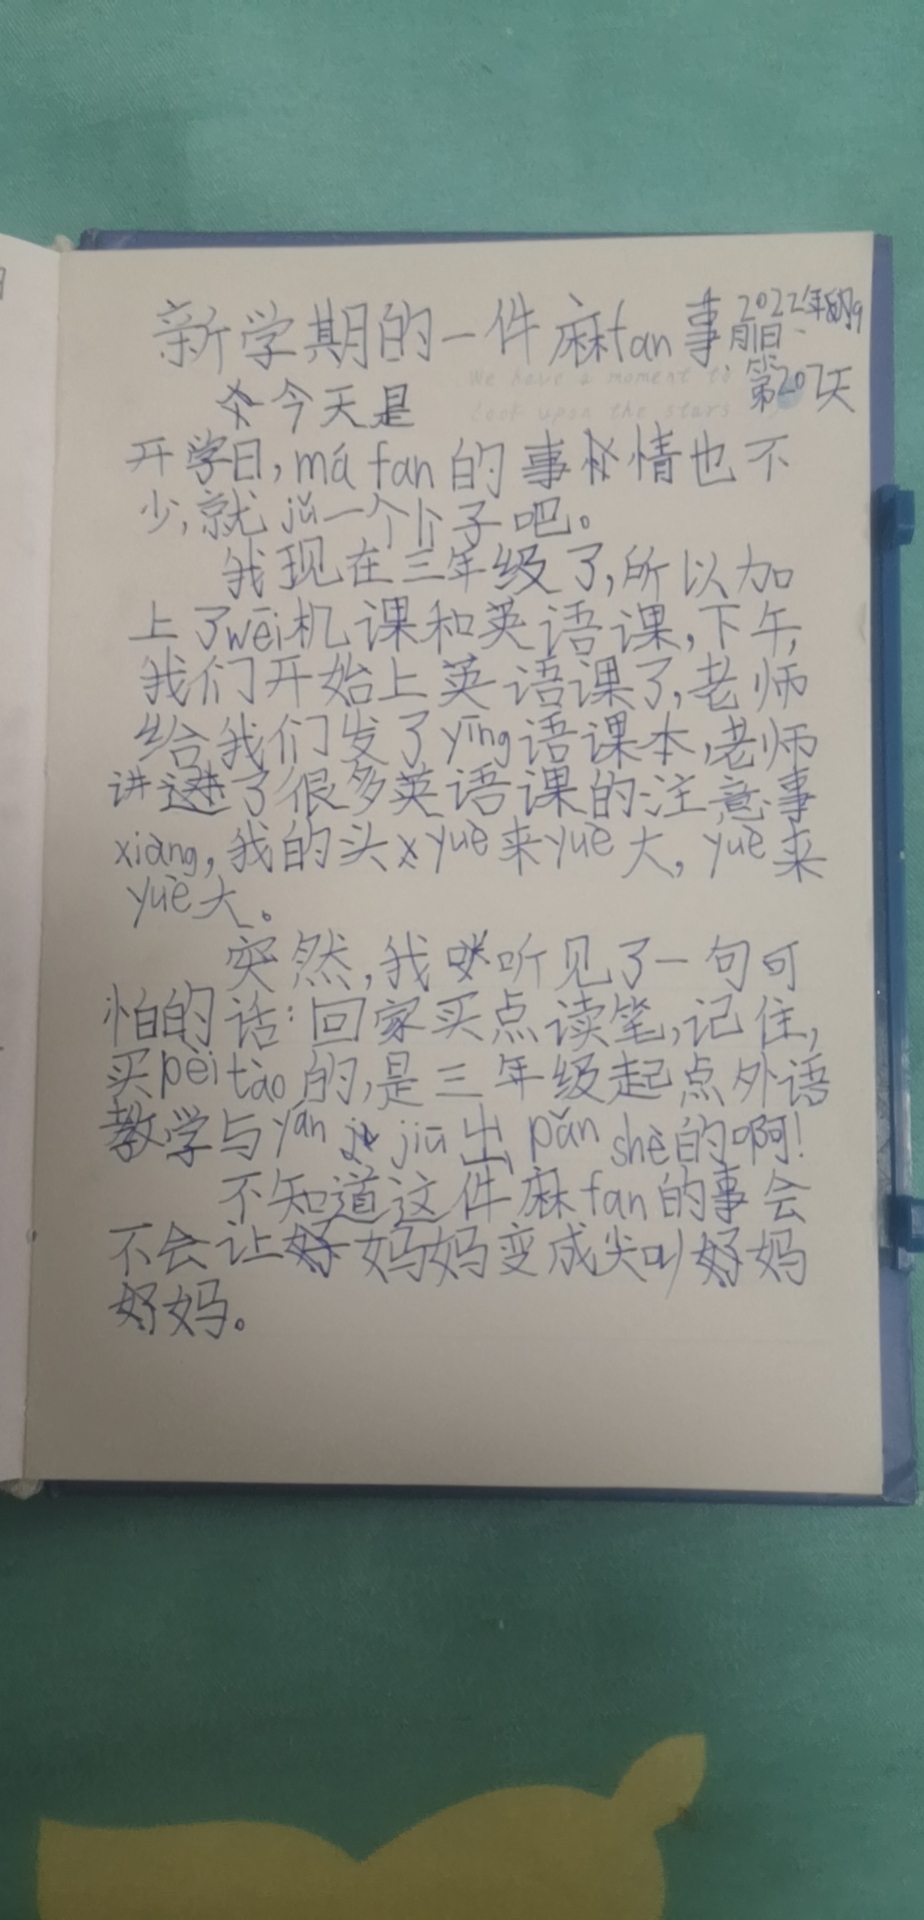 新学期的一件麻fan事
2022年
月1日
第202天
We have a moment to
look upon the stars
今天是
开学日,má fan的事情也不
少,就jǔ一个介子吧。
我现在三年级了,所以加
上了wēi机课和英语课,下午,
我们开始上英语课了,老师
给我们发了yīng语课本,老师
讲了很多英语课的注意事
xiàng,我的头yuè来yuè大,yuè来
yuè大。
突然,我听见了一句可
怕的话:回家买点读笔,记住,
买pèi tào的,是三年级起点外语
教学与yán jiū出pǎn shè的啊!
不知道这件麻fan的事会
不会让妈妈变成尖叫妈
妈。